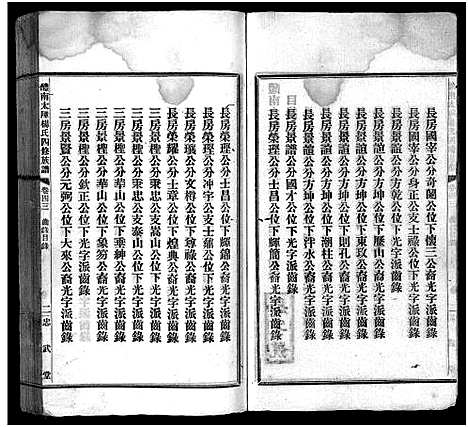 長房國宰公分奇團公位下懷三公裔光字派齒錄
長房國宰公分身正公支一輔公位下光字派齒錄
長房景誼公分方坤公位下乾公裔光字派齒錄
長房景誼公分方坤公位下歷山公裔光字派齒錄
長房景誼公分方坤公位下東玫公裔光字派齒錄
長房景誼公分方坤公位下則孔公裔光字派齒錄
長房景誼公分方坤公位下潮柱公裔光字派齒錄
長房景誼公分方坤公位下泮水公裔光字派齒錄
長房景誼公分國才公位下光字派齒錄
長房榮理公分士昌公位下輝簡公裔光字派齒錄
醴南
目
長房榮理公分士昌公位下輝錦公裔光字派齒錄
長房榮理公分冲宇公支士蘊公位下光字派齒錄
長房榮璣公分文樽公位下尊祿公裔光字派齒錄
長房榮耀公分士章公位下煌典公裔光字派齒錄
三房景樫公分秉忠公支嵩山公位下光字派齒錄
三房景樫公分秉忠公支泰山公位下光字派齒錄
三房景樫公分華山公位下乘紳公裔光字派齒錄
三房景樫公分華山公位下象笏公裔光字派齒錄
三房景樫公分欽正公位下光字派齒錄
三房景賢公分元弼公位下大來公裔光字派齒錄
醴南太陣楊氏四修族譜
卷四三
齒錄目錄
二
忠武堂